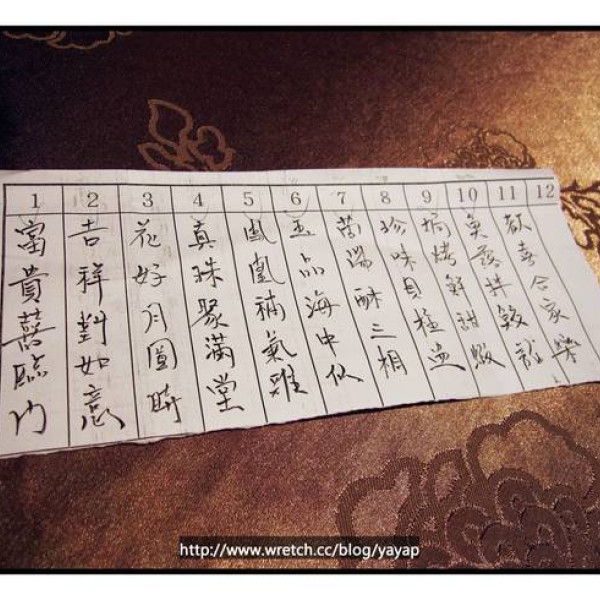 1 2 3 4 5 6 7 8 9 10 11 12
富貴臨門
吉祥對如意
花好月圓時
真珠聚滿堂
鳳凰補氣雞
玉品海中仙
酥三相
珍味貝極
焗烤鮮甜
魚餃
歡喜合家樂
http://www.wretch.cc/blog/yayap